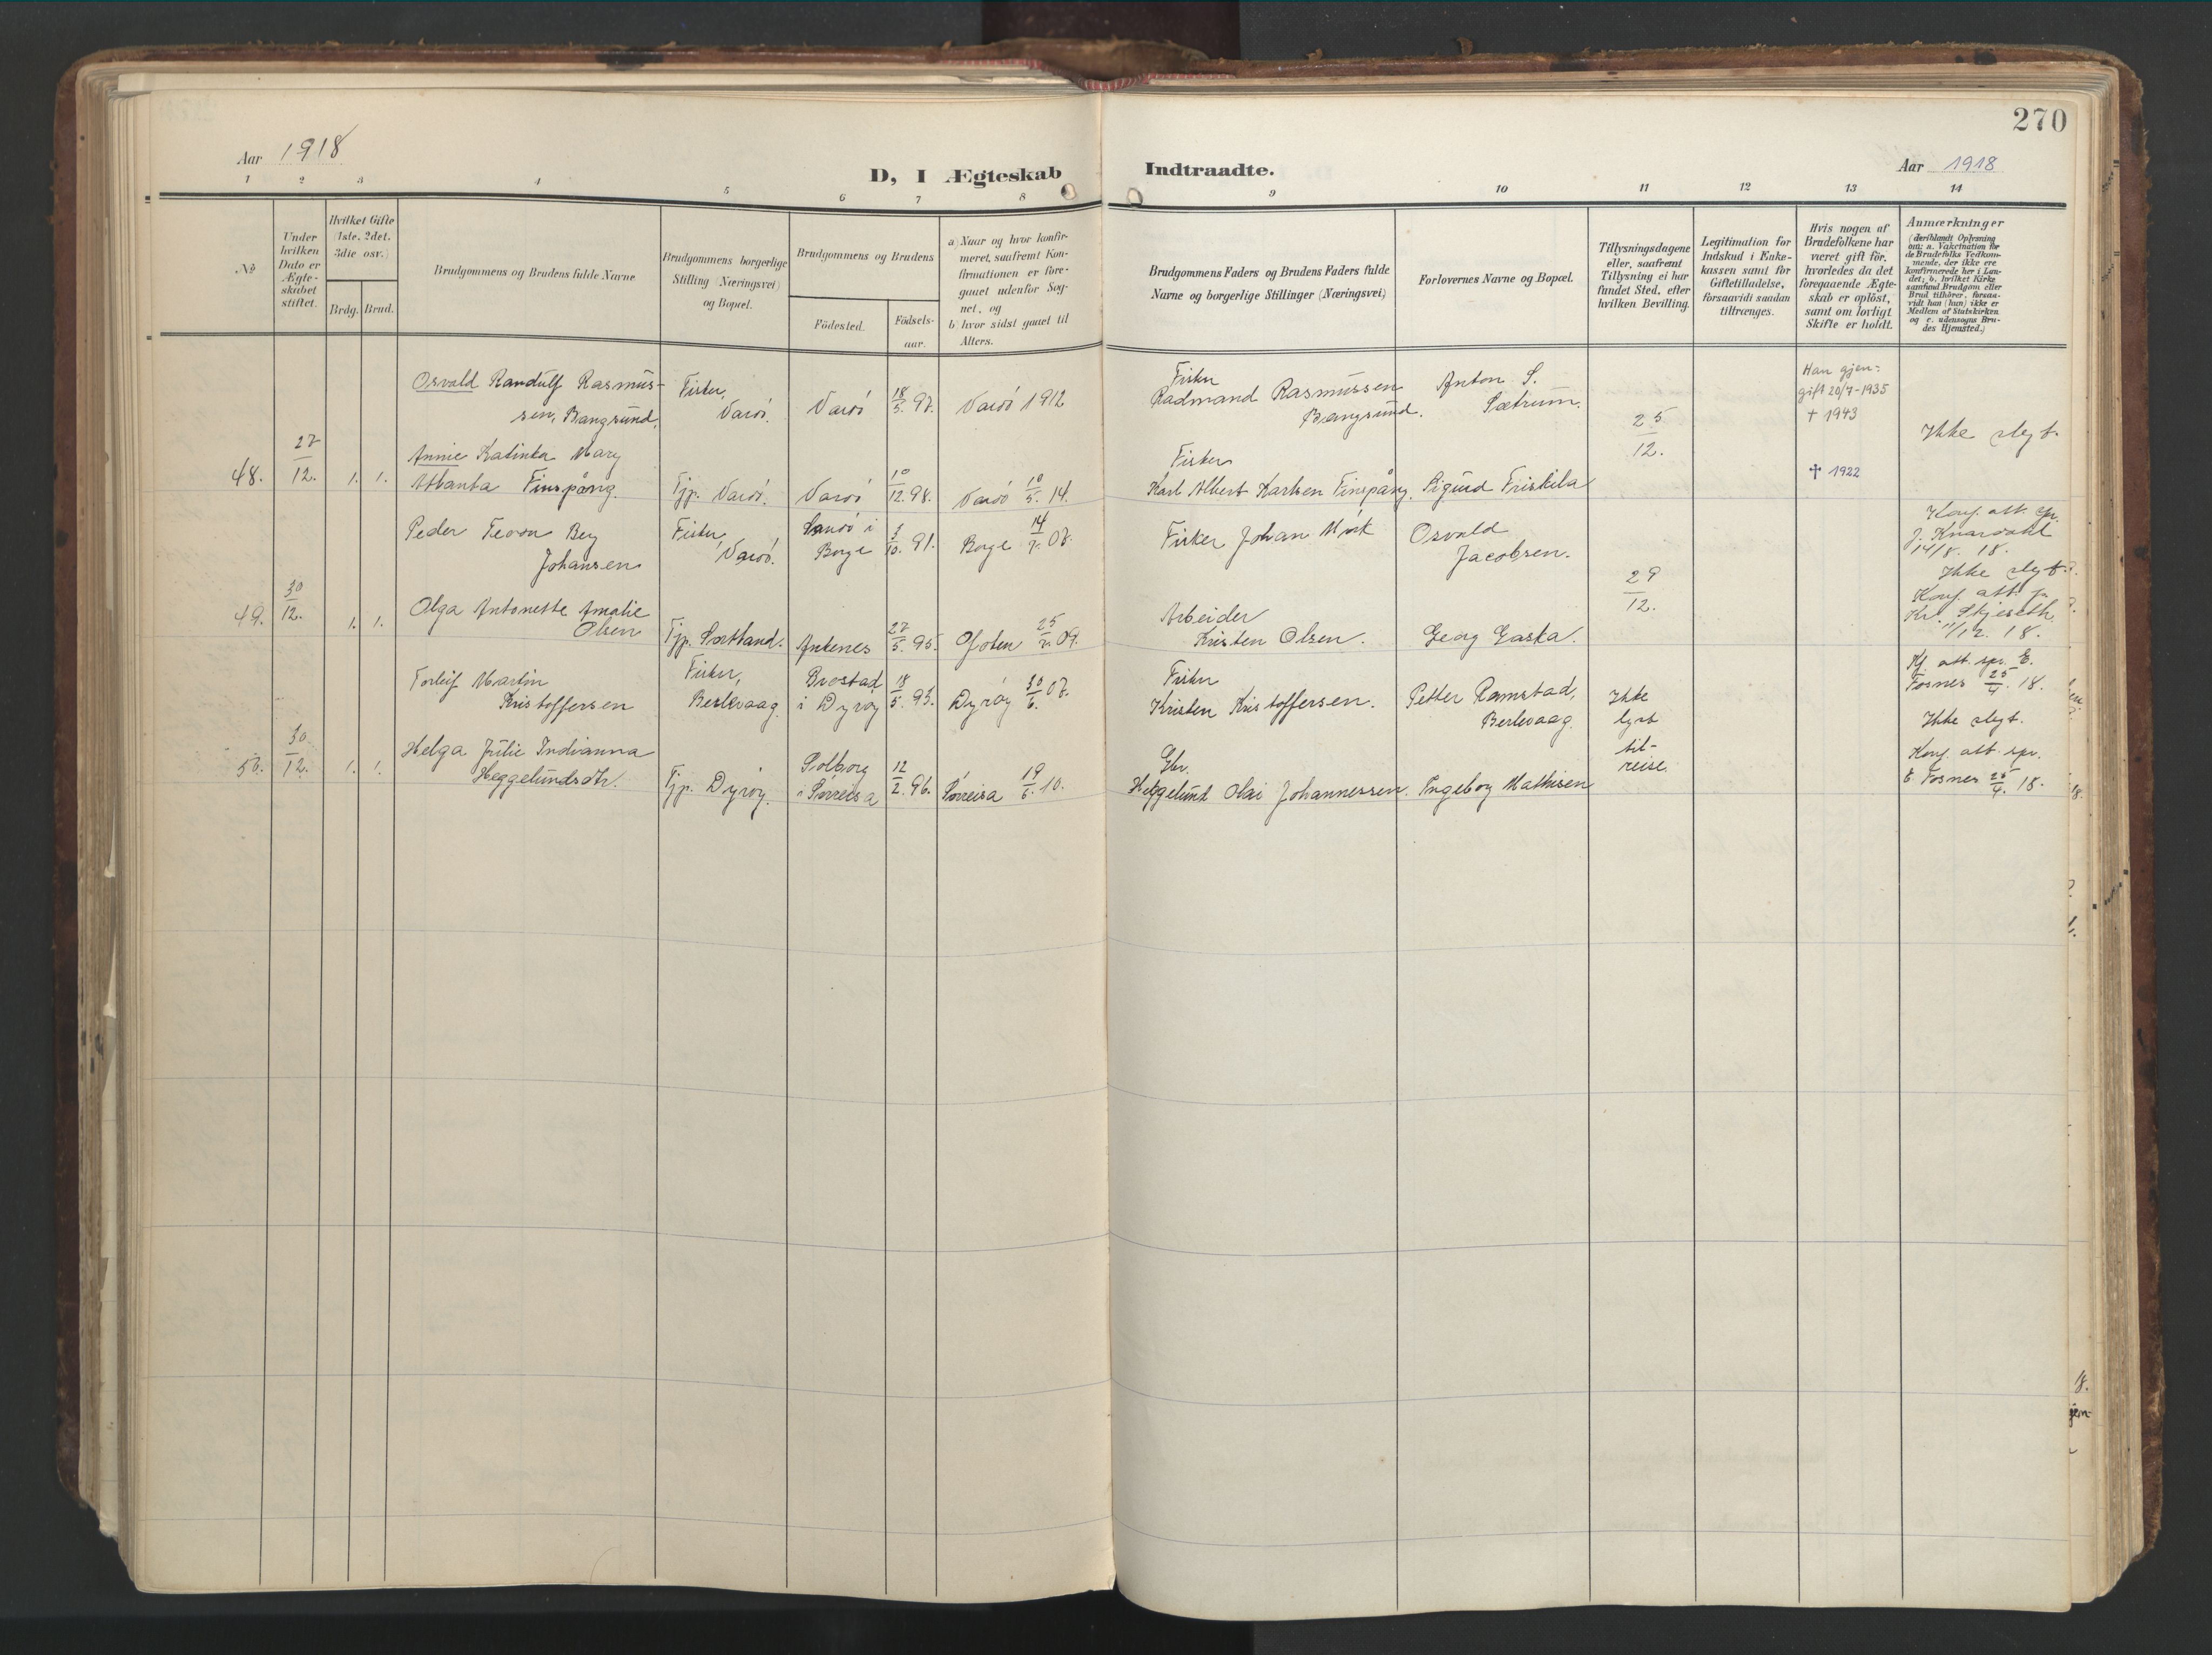 270
Aar 1918
D, I Ægteskab Indtraadte.
Aar 1918
1 2 3 4 5 6 7 8 9 10 11 12 13 14
No
Under hvilken Dato er Ægte-skabet stiftet.
Hvilket Gifte (1ste, 2det, 3die osv.)
Brdg. Brud.
Brudgommens og Brudens fulde Navne
Brudgommens borgerlige Stilling (Næringsvei) og Bopæl.
Brudgommens og Brudens
Födested.
Födsels-aar.
a) Naar og hvor konfir-meret, saafremt Kon-firmationen er fore-gaaet udenfor Sog-net, og
b) hvor sidst gaaet til Alters.
Brudgommens Faders og Brudens Faders fulde Navne og borgerlige Stillinger (Næringsvei)
Forlovernes Navne og Bopæl.
Tillysningsdagene eller, saafremt Tillysning ei har fundet Sted, efter hvilken Bevilling.
Legitimation for Indskud i Enke-kassen samt for Giftetilladelse, forsaavidt saadan tiltrænges.
Hvis nogen af Brudefolkene har været gift för, hvorledes da det foregaaende Ægte-skab er oplöst, samt om lovligt Skifte er holdt.
Anmærkninger
(deriblandt Oplysning om: a. Vakcination for de Brudefolks Vedkom-mende, der ikke ere konfirmerede her i Lan-det; b. hvilket Kirke-samfund Brudgom eller Brud tilhörer, forsaa-vidt han (hun) ikke er Medlem af Statskirken og c. udensogns Bru-des Hjemsted.)
Osvald Randulf Rasmus-
sen, Bangsund.
Fisker,
Vardö.
Vardö
18/5. 97.
Vardö 1912
Fisker
Radmand Rasmussen
Bangsund.
Anton S.
Sætrum.
25/12.
Han gjen-
gift 20/7-1935
† 1943
Ikke slegt.
48.
27/12.
1. 1.
Annie Katinka Mary
Atlanta Finspång.
Tjp. Vardö.
Vardö
10/12. 98.
Vardö 10/5. 14.
Fisker
Karl Albert Karlsen Finspång.
Sigurd Friskila
† 1922
Peder Teodor Berg
Johansen
Fisker,
Vardö.
Sandö i
Borge
3/10. 91.
Borge 14/7. 07.
Fisker Johan Mörk
Osvald
Jacobsen.
29/12.
Konf. att. spr.
J. Knardahl
14/8. 18.
Ikke slegt.
49.
30/12.
1. 1.
Olga Antonette Amalie
Olsen
Tjp. Sortland.
Ankenes
27/5. 95.
Ofoten 25/7. 09.
Arbeider
Kristen Olsen.
Georg Gaska.
Konf. att. spr.
Kr. Skjeseth
11/12. 18.
Torleif Martin
Kristoffersen
Fisker,
Berlevaag.
Brostad
i Dyröy
18/5. 93.
Dyröy 30/6. 07.
Fisker
Kristen Kristoffersen.
Petter Ramstad,
Berlevaag.
Ikke
lyst
til-
reise.
Kf. att. spr. E.
Fosnes 25/4. 18.
Ikke slegt.
50.
30/12.
1. 1.
Helga Julie Indianna
Heggelundsdtr.
Tjp. Dyröy.
Solborg
i Sørreisa
12/2. 96.
Sørreisa 19/6. 10.
Gbr.
Heggelund Olai Johannessen.
Ingeborg Mathisen
Konf. att. spr.
E. Fosnes 25/4. 18.